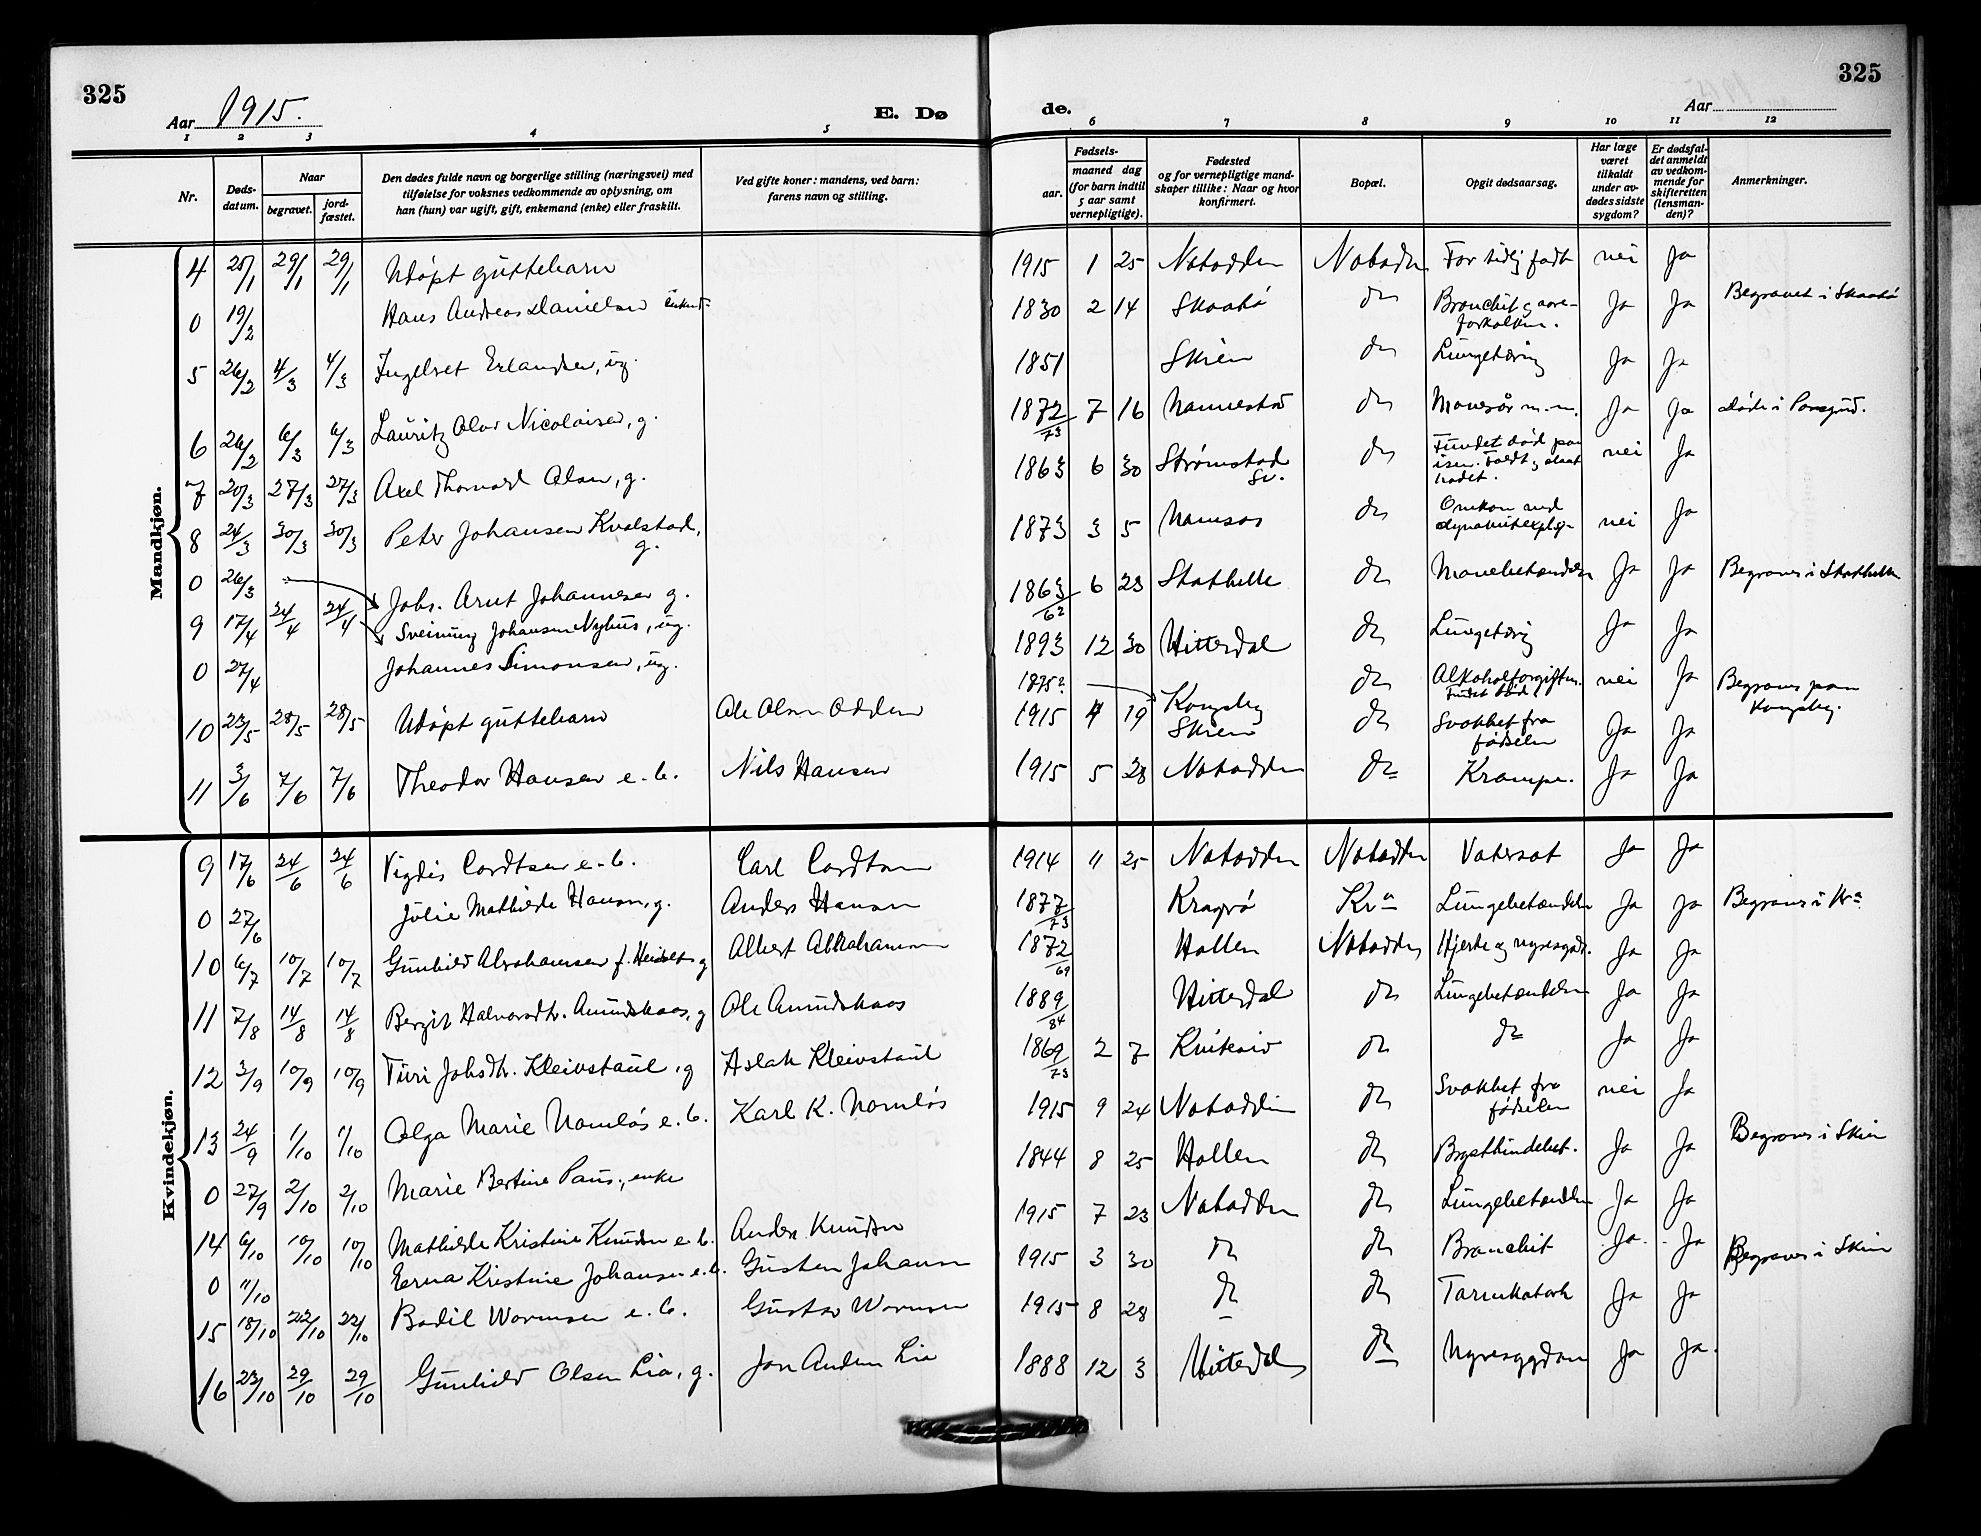 325
Aar 1915.
E. Dø
de.
Aar
325
1 2 3 4 5 6 7 8 9 10 11 12
Nr.
Døds-
datum.
Naar
begravet.
jord-
fæstet.
Den dødes fulde navn og borgerlige stilling (næringsvei) med
tilføielse for voksnes vedkommende av oplysning, om
han (hun) var ugift, gift, enkemand (enke) eller fraskilt.
Ved gifte koner: mandens, ved barn:
farens navn og stilling.
Fødsels-
aar.
maaned dag
(for barn indtil
5 aar samt
vernepligtige).
Fødested
og for vernepligtige mand-
skaper tillike: Naar og hvor
konfirmert.
Bopæl.
Opgit dødsaarsag.
Har læge
været
tilkaldt
under av-
dødes sidste
sygdom?
Er dødsfal-
det anmeldt
av vedkom-
mende for
skifteretten
(lensman-
den)?
Anmerkninger.
Mandkjøn.
4 25/1 29/1 29/1 Udøpt guttebarn 1915 1 25 Notodden Notodden For tidlig født nei Ja
0 19/2 Hans Andreas Danielsen enkem. 1830 2 14 Skaatø do Bronchit og aare-
forkalkn. Ja Ja Begravet i Skaatø
5 26/2 4/3 4/3 Ingebret Erlandsen, ug. 1851 Skien do Lungetæring Ja Ja
6 26/2 6/3 6/3 Lauritz Olav Nicolaisen, g. 1872/73 7 16 Nannestad do Mavesår m.m. Ja Ja døde i Porsgrd.
7 20/3 27/3 27/3 Axel Thorvald Olsen, g. 1863 6 30 Strømstad
Sv. do Fundet død paa
isen. Faldt og slaat
hodet. nei Ja
8 24/3 30/3 30/3 Peter Johansen Kvalstad,
g. 1873 3 5 Namsos do Omkom ved
dynamitexplos. nei Ja
0 26/3 Johs. Arnt Johannesen g. 1863/62 6 23 Stathelle do Mavebetændelse Ja Ja Begraves i Stathelle
9 17/4 24/4 24/4 Sveinung Johansen Nyhus, ug. 1893 12 30 Hitterdal do Lungetæring Ja Ja
0 27/4 Johannes Simonsen, ug. 1875? Kongsberg do Alkoholforgiftn.
Fundet død nei Ja Begraves paa
Kongsberg.
10 23/5 28/5 28/5 Udøpt guttebarn Ole Olsen Odden 1915 4 19 Skien do Svakhet fra
fødselen Ja Ja
11 3/6 7/6 7/6 Theodor Hansen e. b. Nils Hansen 1915 5 28 Notodden do Krampe. Ja Ja
Kvindekjøn.
9 17/6 24/6 24/6 Vigdis Cordtsen e. b. Carl Cordtsen 1914 11 25 Notodden Notodden Vatersot Ja Ja
0 27/6 Julie Mathilde Hansen, g. Anders Hansen 1877/73 Kragerø Kra Lungebetændelse Ja Ja Begraves i Kra
10 6/7 10/7 10/7 Gunhild Abrahamsen f. g Albert Abrahamsen 1872/69 Hollen Notodden Hjerte og nyresygd. Ja Ja
11 7/8 14/8 14/8 Bergit Halvorsdtr. Amundskaas, g Ole Amundskaas 1889/84 Hitterdal do Lungebetændelse Ja Ja
12 3/9 10/9 10/9 Turi Johsdtr. Kleivstaul, g Aslak Kleivstaul 1869/73 2 7 Kviteseid do do Ja Ja
13 24/9 1/10 1/10 Olga Marie Namløs e. b. Karl K. Namløs 1915 9 24 Notodden do Svakhet fra
fødselen nei Ja
0 27/9 2/10 2/10 Marie Bertine Paus, enke 1844 8 25 Hollen do Brysthindebet. Ja Ja Begraves i Skien
14 6/10 10/10 10/10 Mathilde Kristine Knudsen e. b. Anders Knudsen 1915 7 23 Notodden do Lungebetændelse Ja Ja
0 11/10 Erna Kristine Johansen e. b. Gusten Johansen 1915 3 30 do do Bronchit Ja Ja Begraves i Skien
15 18/10 22/10 22/10 Bodil Wormsen e. b. Gustav Wormsen 1915 8 28 do do Tarmkatarh Ja Ja
16 23/10 29/10 29/10 Gunhild Olsen Lia, g. Jon Andersen Lia 1888 12 3 Hitterdal do Nyresygdom Ja Ja